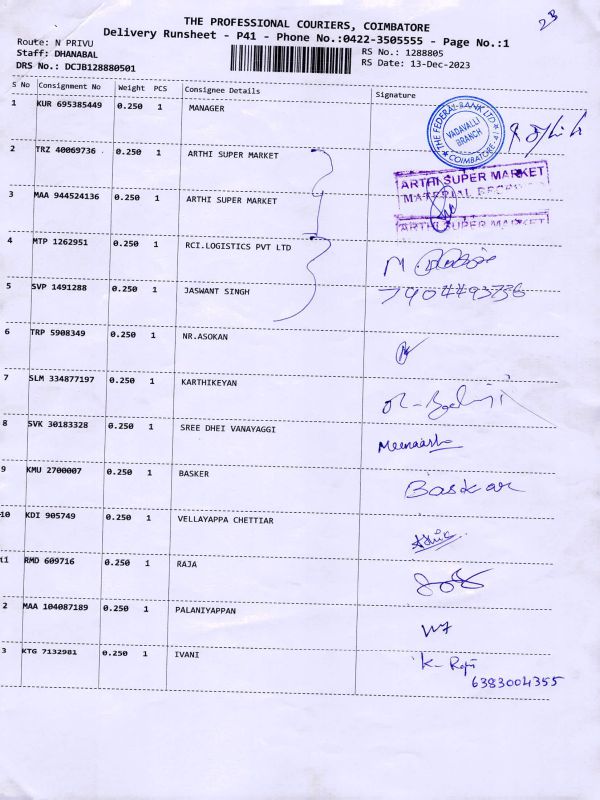 THE PROFESSIONAL COURIERS, COIMBATORE
Delivery Runsheet - P41 - Phone No.:0422-3505555 - Page No.:1
Route: N PRIVU
Staff: DHANABAL
DRS No.: DCJB128880501
RS No.: 1288805
RS Date: 13-Dec-2023
S No Consignment No Weight PCS Consignee Details Signature
1 KUR 695385449 0.250 1 MANAGER
THE FEDERAL BANK LTD
VADAVALLI BRANCH
COIMBATORE
2 TRZ 40069736 0.250 1 ARTHI SUPER MARKET
ARTHI SUPER MARKET
3 MAA 944524136 0.250 1 ARTHI SUPER MARKET
ARTHI SUPER MARKET
4 MTP 1262951 0.250 1 RCI.LOGISTICS PVT LTD
5 SVP 1491288 0.250 1 JASWANT SINGH
6 TRP 5908349 0.250 1 NR.ASOKAN
7 SLM 334877197 0.250 1 KARTHIKEYAN
8 SVK 30183328 0.250 1 SREE DHEI VANAYAGGI
9 KMU 2700007 0.250 1 BASKER Baskar
10 KDI 905749 0.250 1 VELLAYAPPA CHETTIAR
11 RMD 609716 0.250 1 RAJA
2 MAA 104087189 0.250 1 PALANIYAPPAN
3 KTG 7132981 0.250 1 IVANI
6383004355